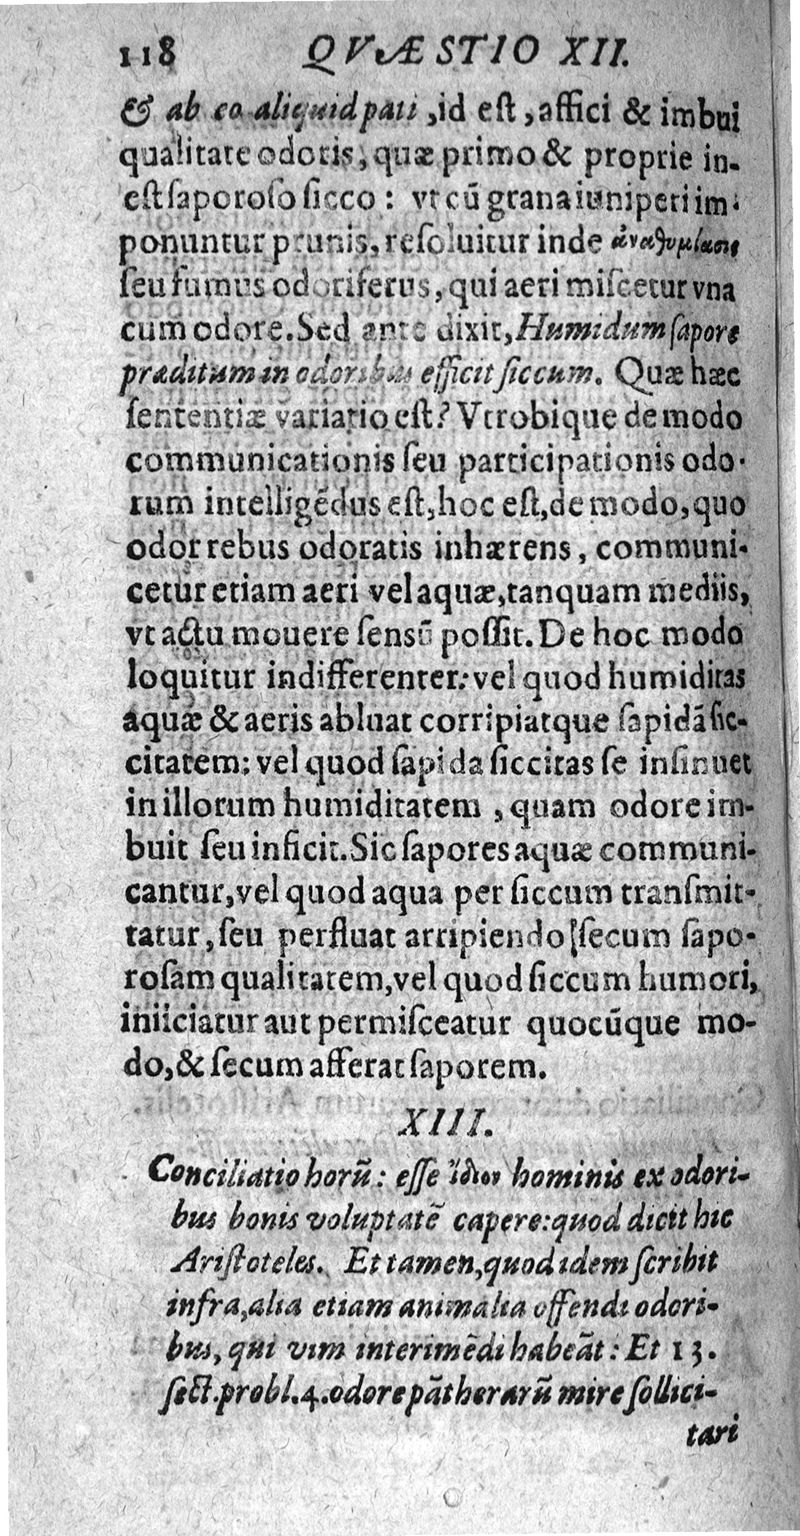 118 QVÆSTIO XII.
& ab eo aliquid pati, id eſt, affici & imbui
qualitate odoris, quæ primo & proprie in-
eſt ſaporoſo ſicco: vt cū grana iuniperi im-
ponuntur prunis, reſoluitur inde ἀναθυμίασις
ſeu fumus odoriferus, qui aeri miſcetur vna
cum odore. Sed ante dixit, Humidum ſapore
præditum in odoribus efficit ſiccum. Quæ hæc
ſententiæ variatio eſt? Vtrobique de modo
communicationis ſeu participationis odo-
rum intelligēdus eſt, hoc eſt, de modo, quo
odor rebus odoratis inhærens, communi-
cetur etiam aeri vel aquæ, tanquam mediis,
vt actu mouere ſensū poſſit. De hoc modo
loquitur indifferenter: vel quod humiditas
aquæ & aeris abluat corripiatque ſapidā ſic-
citatem: vel quod ſapida ſiccitas ſe inſinuet
in illorum humiditatem, quam odore im-
buit ſeu inficit. Sic ſapores aquæ communi-
cantur, vel quod aqua per ſiccum tranſmit-
tatur, ſeu perfluat arripiendo ſecum ſapo-
roſam qualitatem, vel quod ſiccum humori,
iniiciatur aut permiſceatur quocūque mo-
do, & ſecum afferat ſaporem.
XIII.
Conciliatio horū: eſſe ἴδιον hominis ex odori-
bus bonis voluptatē capere: quod dicit hic
Ariſtoteles. Et tamen, quod idem ſcribit
infra, alia etiam animalia offendi odori-
bus, qui vim interimēdi habeāt: Et 13.
ſect. probl. 4. odore pātherarū mire ſollici-
tari